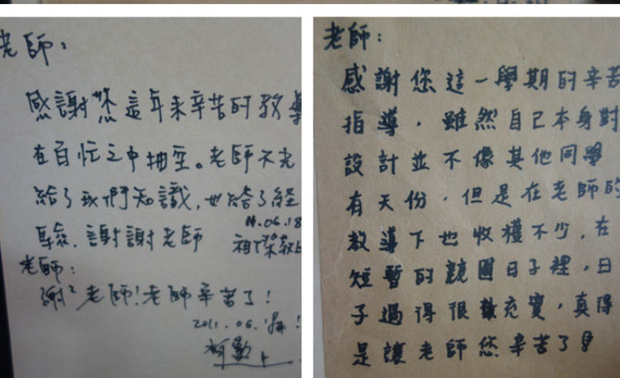 老師：
感謝您這年來辛苦的教導
在百忙之中抽空。老師不光
給了我們知識，也給了經
驗．謝謝老師
11.06.18
老師：
謝² 老師！老師辛苦了！
2011.06.
老師：
感謝您這一學期的辛苦
指導，雖然自己本身對
設計並不像其他同學
有天份，但是在老師的
教導下也收穫不少，在
短暫的競圖日子裡，日
子過得很充實，真得
是讓老師您辛苦了！